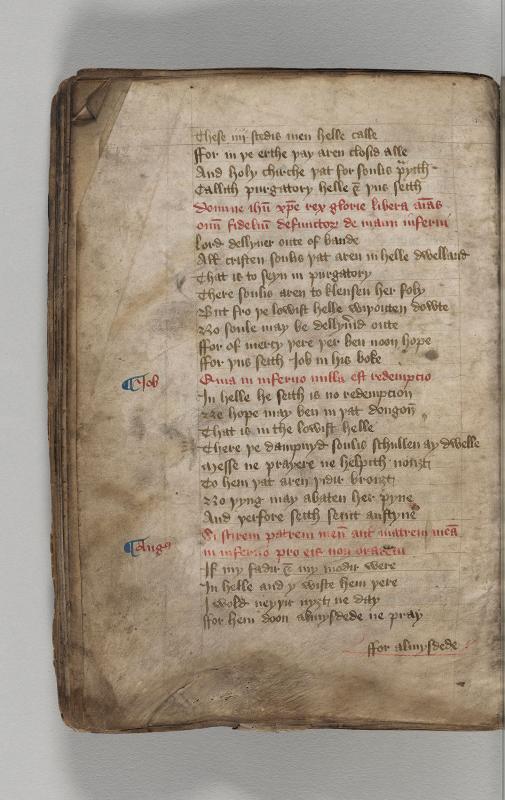 These iiij stedis men helle calle
Ffor in þe erthe þay aren closid alle
And holy chirche þat for soulis prayth
Callith purgatory helle & þus seith
Domine ihu xpe rex glorie libera aias
oim fidelium defunctor de manu inferni
Lord delyuer oute of bande
All cristen soulis þat aren in helle dwelland
That is to seyn in purgatory
There soulis aren to klensen her foly
But fro þe lowist helle wiþouten dowte
No soule may be delyuerd oute
Ffor of mercy þere þer ben noon hope
Ffor þus seith Job in his boke
Job
Quia in inferno nulla est redempcio
In helle he seith is no redempcion
Ne hope may ben in þat dongon
That is in the lowist helle
There þe dampnyd soulis schullen ay dwelle
Messe ne prayere ne helpith nouȝt
To hem þat aren þidir brouȝt
No þyng may abaten her pyne
And þerfore seith seint austyne
Augꝰ
Si scirem patrem meu aut matrem mea
in inferno pro eis non orarem
If my fadir & my modir were
In helle and y wiste hem þere
I wold neyþir nyȝt ne day
Ffor hem doon almysdede ne pray
Ffor almysdede